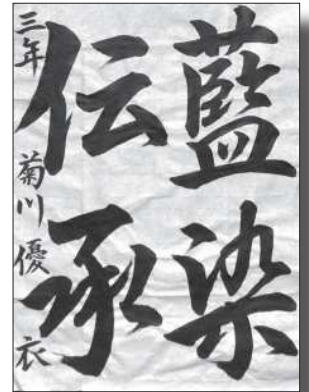 藍染
伝承
三年 菊川優衣